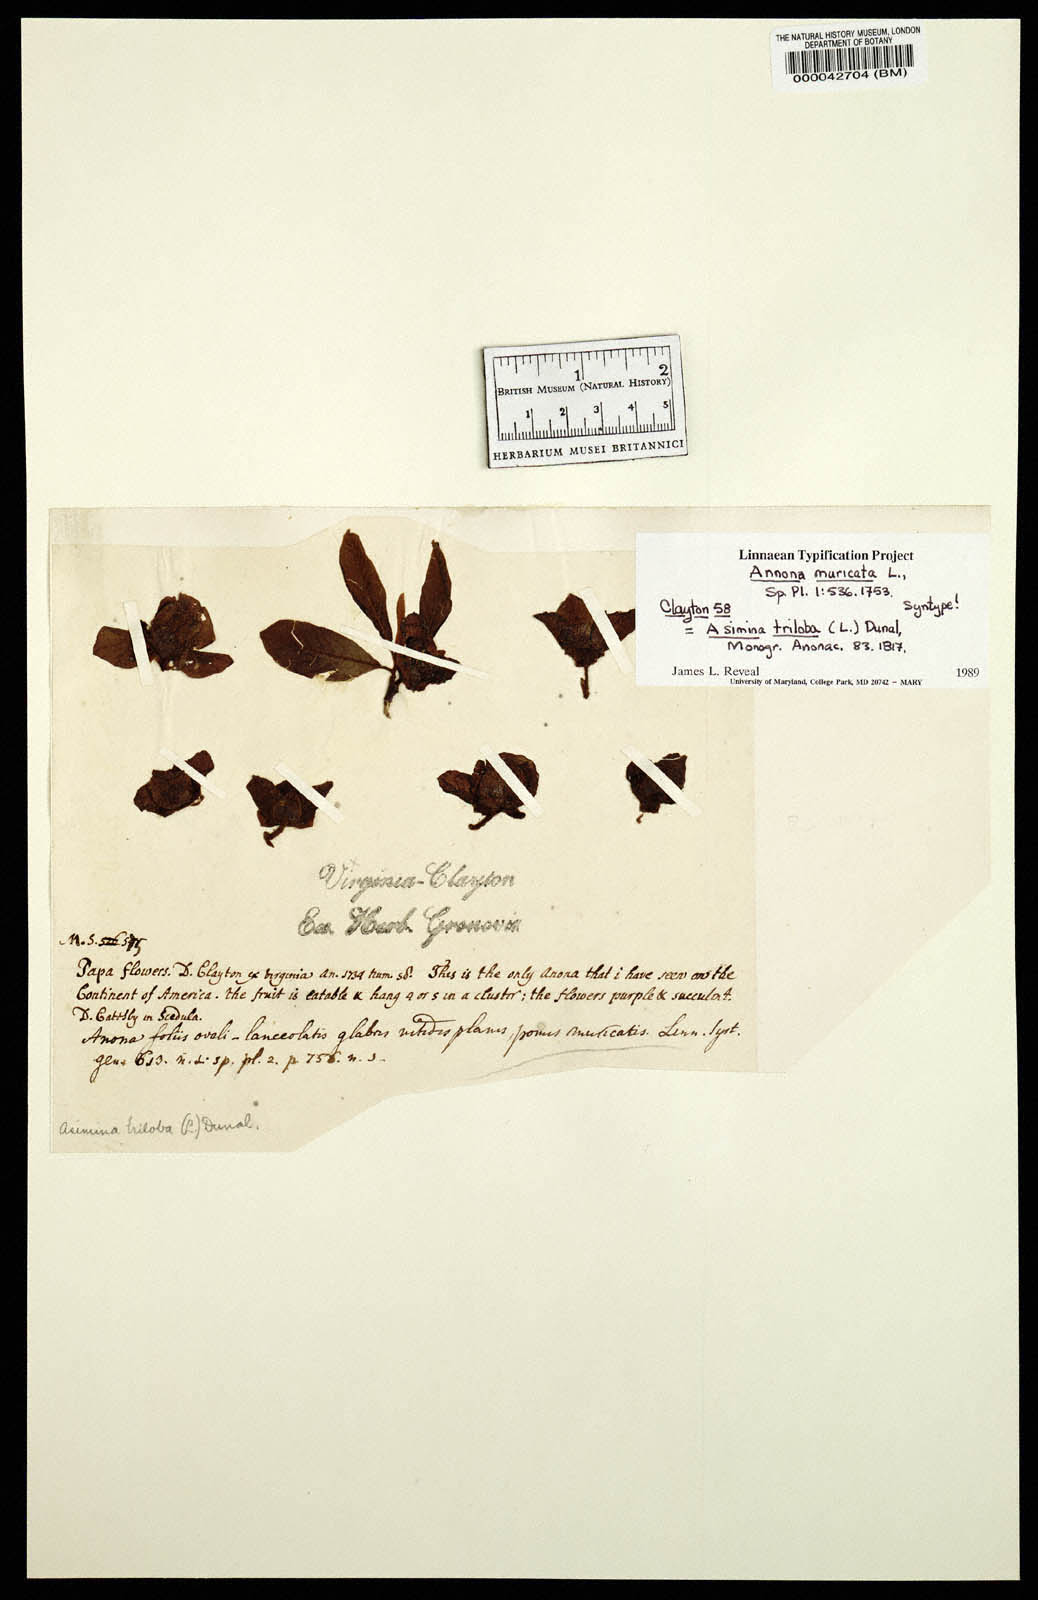 THE NATURAL HISTORY MUSEUM, LONDON
DEPARTMENT OF BOTANY
000042704 (BM)
1 2
BRITISH MUSEUM (NATURAL HISTORY)
1 2 3 4 5
HERBARIUM MUSEI BRITANNICI
Linnaean Typification Project
Annona muricata L.,
Sp. Pl. 1:536. 1753.
Clayton 58 Syntype!
= Asimina triloba (L.) Dunal,
Monogr. Anonac. 83. 1817.
James L. Reveal 1989
University of Maryland, College Park, MD 20742 – MARY
Virginia-Clayton
Ex Herb. Gronovii
M. S.
Papa flowers. D. Clayton ex Virginia An. 1734 num. 58. This is the only Anona that i have seen on the
Continent of America. the fruit is eatable & hang 4 or 5 in a clustr; the flowers purple & succulent.
D. Cattsby in Scedula.
Anona foliis ovali-lanceolatis glabris nitidis planis, pomis muricatis. Linn. Syst.
gen. 613. n. 1. sp. pl. 2. p. 756. n. 1.
Asimina triloba (L.) Dunal.